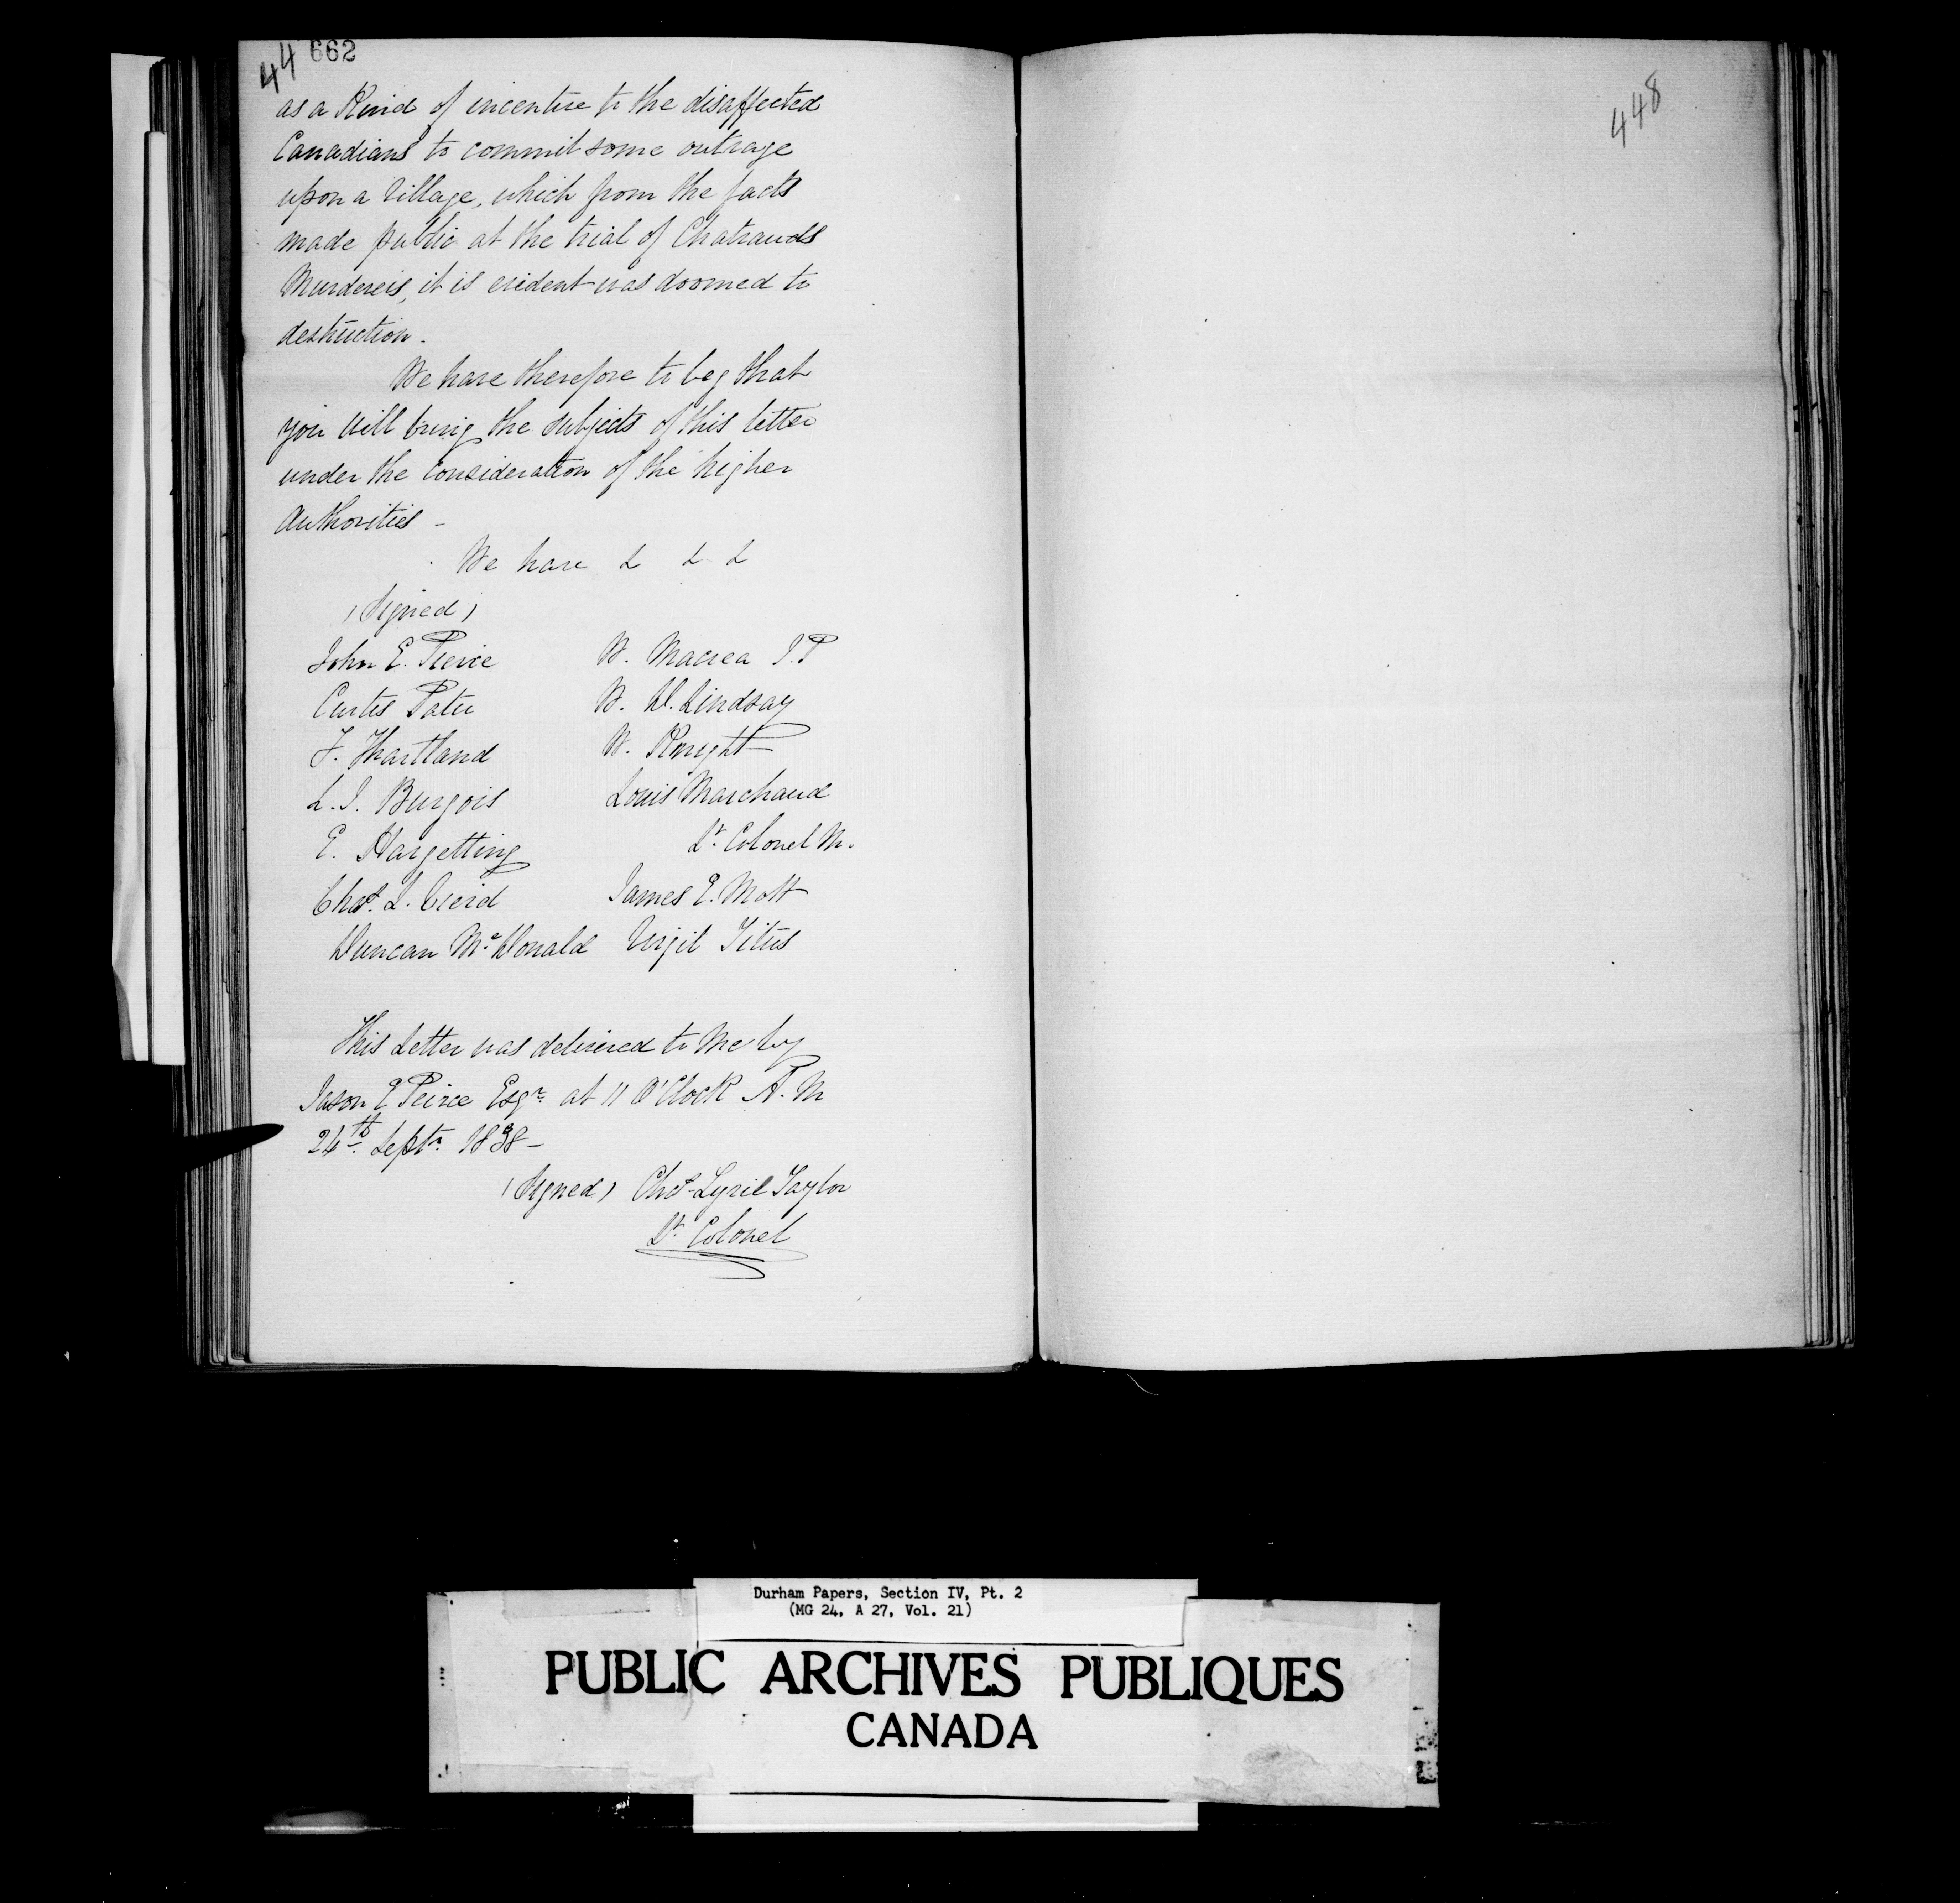 44 662
as a Kind of incentive to the disaffected
Canadians to commit some outrage
upon a Village, which from the facts
made public at the trial of Chatrands
Murderers, it is evident was doomed to
destruction.
We have therefore to beg that
you will bring the subjects of this letter
under the consideration of the higher
Authorities -
We have & & &
(Signed)
John E. Pierce
W. Macrea J.P
Curtis Pater
W. D. Lindsay
F. Hartland
W. Knight
L. J. Burgois
Louis Marchand
E. Hargetting
Lt. Colonel M.
Chas. L.
James E. Mott
Duncan Mc Donald
Virgil Titus
This Letter was delivered to Me by
Jason E Peirce Esqr. at 11 O'Clock A. M
24th Septr. 1838 -
(Signed) Chas Cyril Taylor
Lt Colonel
448
Durham Papers, Section IV, Pt. 2
(MG 24, A 27, Vol. 21)
PUBLIC ARCHIVES PUBLIQUES
CANADA